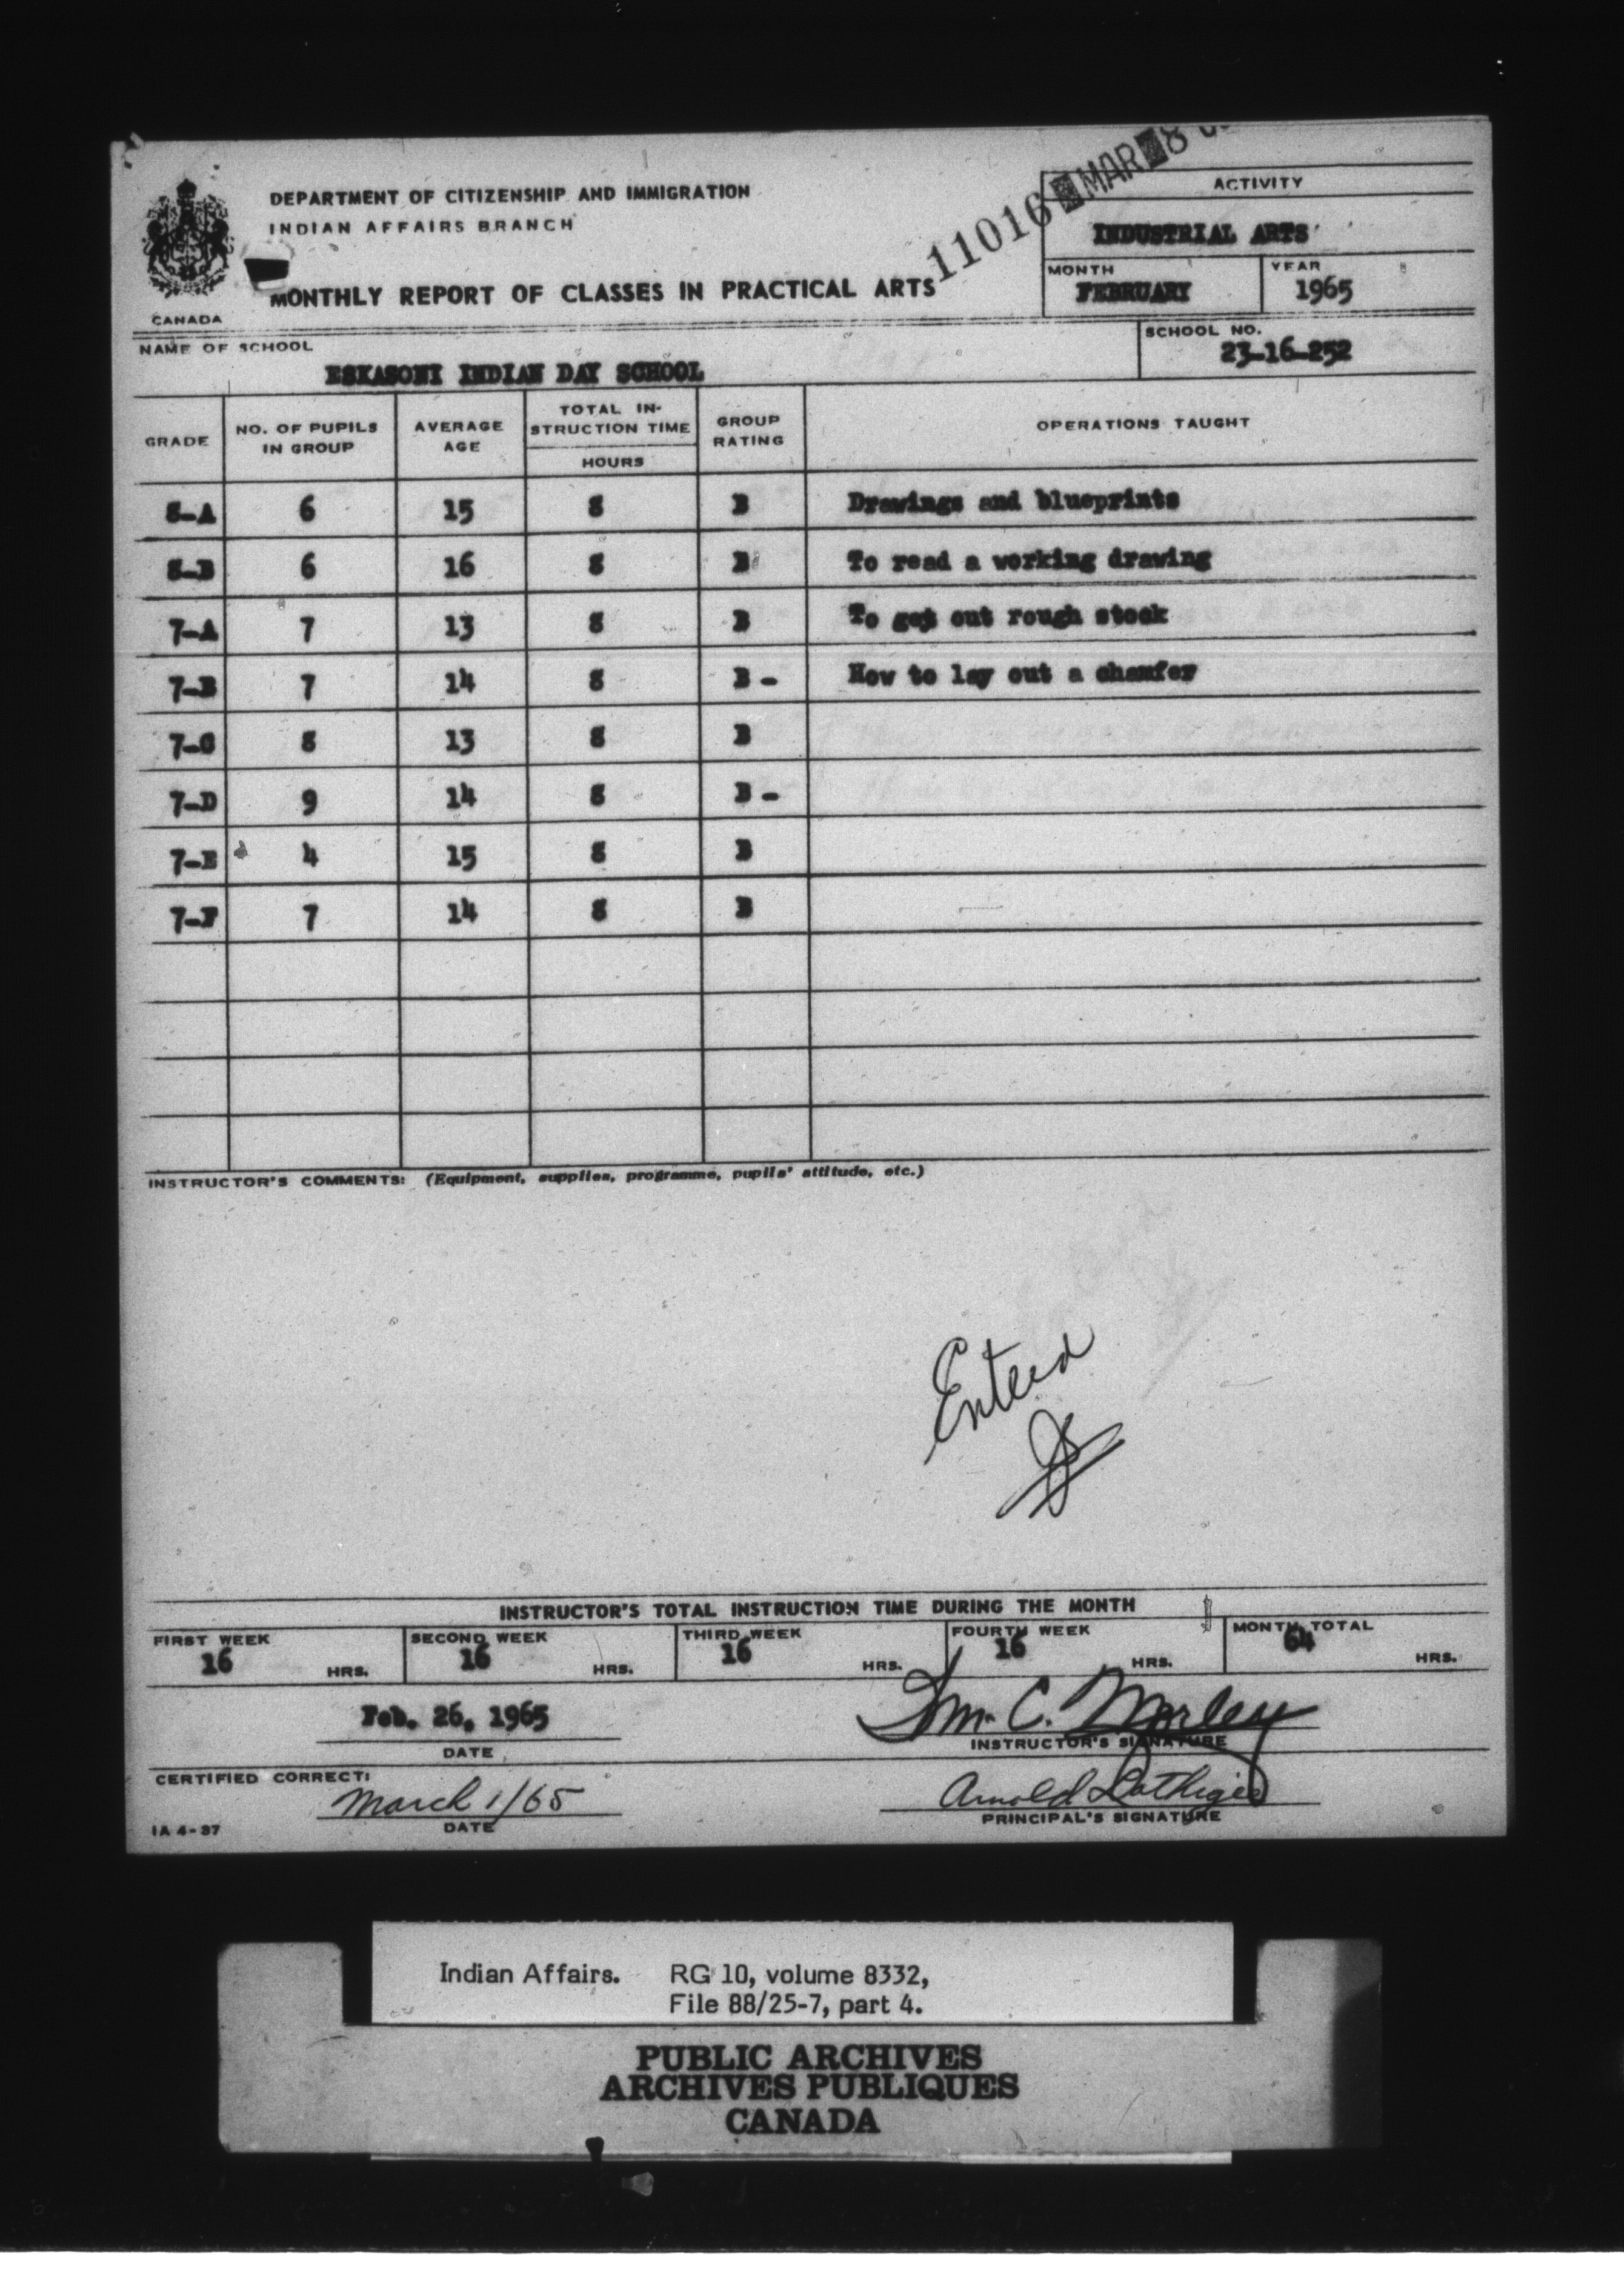 11016 MAR 8
DEPARTMENT OF CITIZENSHIP AND IMMIGRATION
INDIAN AFFAIRS BRANCH
MONTHLY REPORT OF CLASSES IN PRACTICAL ARTS
CANADA
ACTIVITY
INDUSTRIAL ARTS
MONTH YEAR
FEBRUARY 1965
NAME OF SCHOOL SCHOOL NO.
ESKASONI INDIAN DAY SCHOOL 23-16-252
GRADE NO. OF PUPILS IN GROUP AVERAGE AGE TOTAL IN-STRUCTION TIME HOURS GROUP RATING OPERATIONS TAUGHT
8-A 6 15 8 B Drawings and blueprints
8-B 6 16 8 B To read a working drawing
7-A 7 13 8 B To get out rough stock
7-B 7 14 8 B - How to lay out a chamfer
7-C 8 13 8 B
7-D 9 14 8 B -
7-E 4 15 8 B
7-F 7 14 8 B
INSTRUCTOR'S COMMENTS: (Equipment, supplies, programme, pupils' attitude, etc.)
Entered
INSTRUCTOR'S TOTAL INSTRUCTION TIME DURING THE MONTH
FIRST WEEK SECOND WEEK THIRD WEEK FOURTH WEEK MONTH TOTAL
16 HRS. 16 HRS. 16 HRS. 16 HRS. 64 HRS.
Feb. 26, 1965 Wm. C. Morley
DATE INSTRUCTOR'S SIGNATURE
CERTIFIED CORRECT:
March 1/65 Arnold
DATE PRINCIPAL'S SIGNATURE
IA 4-37
Indian Affairs. RG 10, volume 8332,
File 88/25-7, part 4.
PUBLIC ARCHIVES
ARCHIVES PUBLIQUES
CANADA